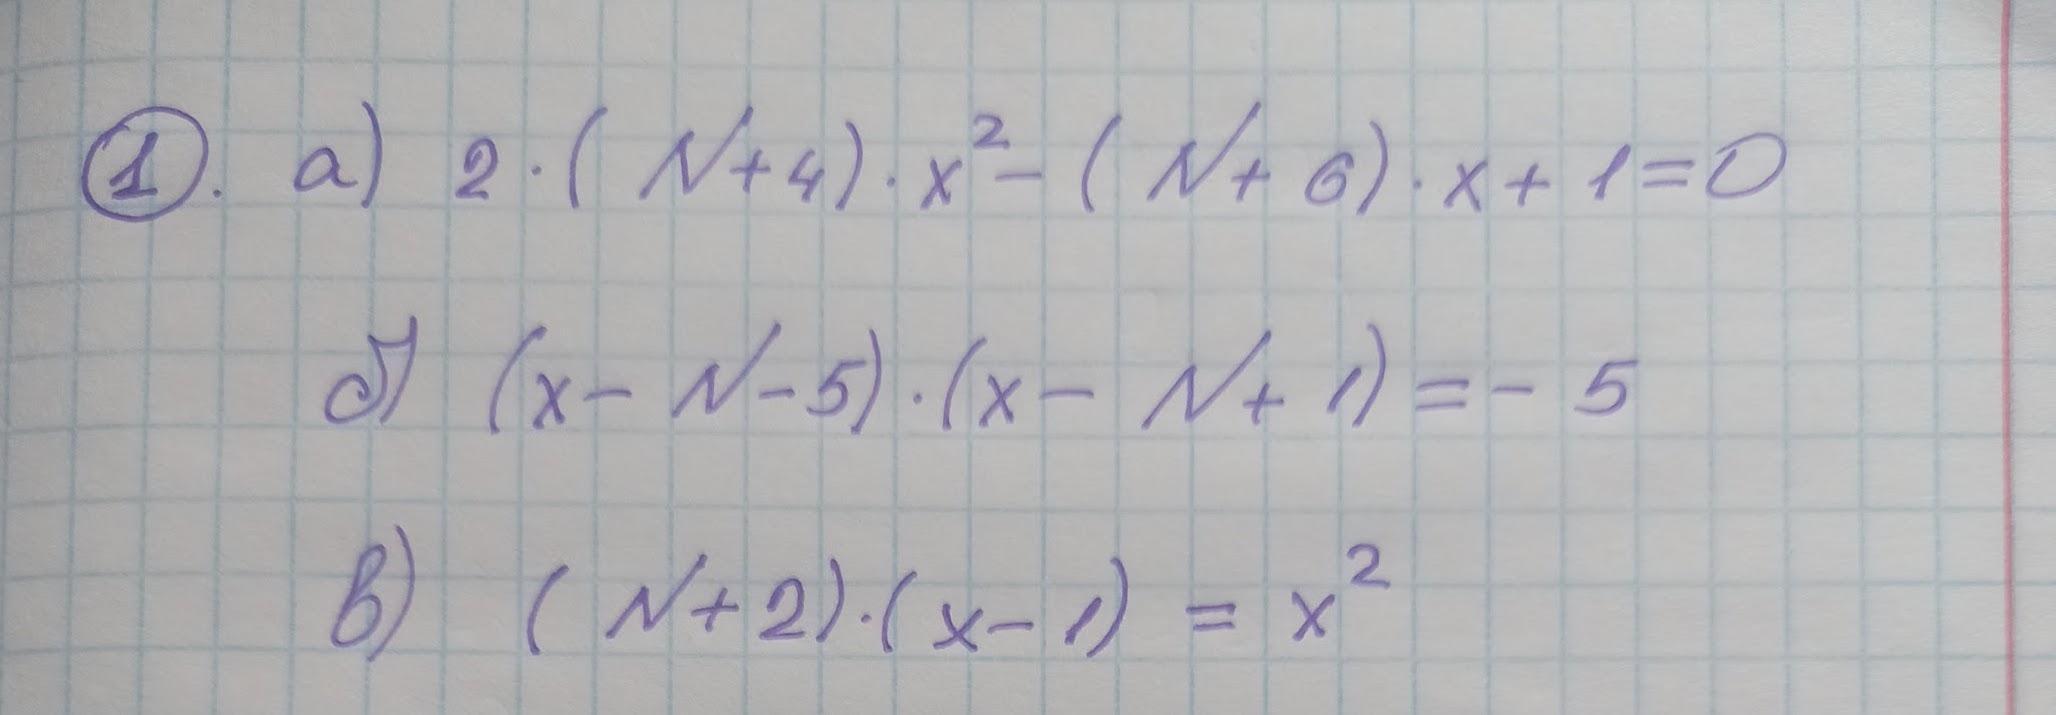 1. а) 2 · (N+4) · x² - (N+6) · x + 1 = 0
б) (x - N - 5) · (x - N + 1) = - 5
в) (N+2) · (x - 1) = x²